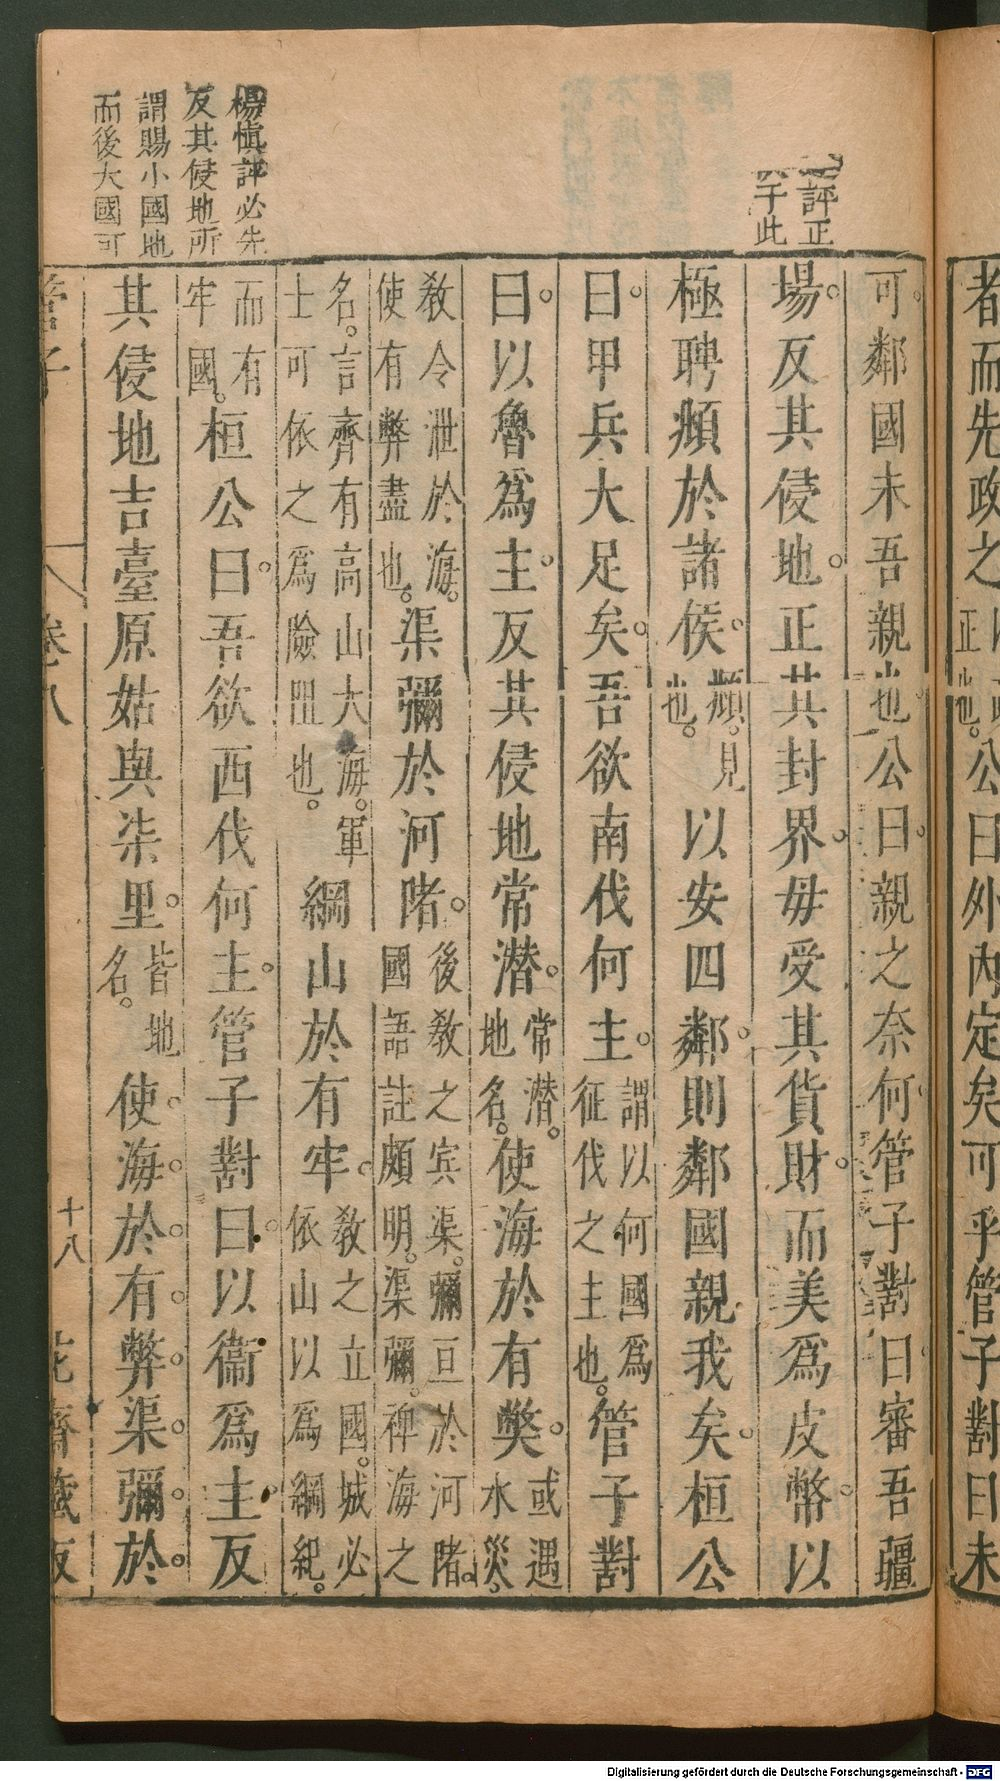 都而先政之正也。公曰外內定矣可乎管子對曰未
評正
于此
楊慎評必先
反其侵地所
謂賜小國地
而後大國可
可。鄰國未吾親也公曰。親之奈何。管子對曰。審吾疆
場。反其侵地。正其封界。毋受其貨財。而美爲皮幣。以
極聘頫於諸侯。頫。見也。以安四鄰。則鄰國親我矣。桓公
曰。甲兵大足矣。吾欲南伐何主。謂以何國爲征伐之主也。管子對
曰。以魯爲主。反其侵地常潛。常潛。地名。使海於有獘。或遇水災。
敎令泄於海。使有弊盡也。渠彌於河陼。後敎之宾渠。彌亘於河陼。國語註頗明。渠彌。裨海之
名。言齊有高山大海。軍士可依之爲險阻也。綱山於有牢。敎之立國。城必依山以爲綱紀。
而有牢國。桓公曰。吾欲西伐何主。管子對曰。以衞爲主。反
其侵地吉臺原姑與柒里。皆地名。使。海。於。有。弊。渠。彌。於。
管子 卷八 十八 花齋藏板
Digitalisierung gefördert durch die Deutsche Forschungsgemeinschaft - DFG